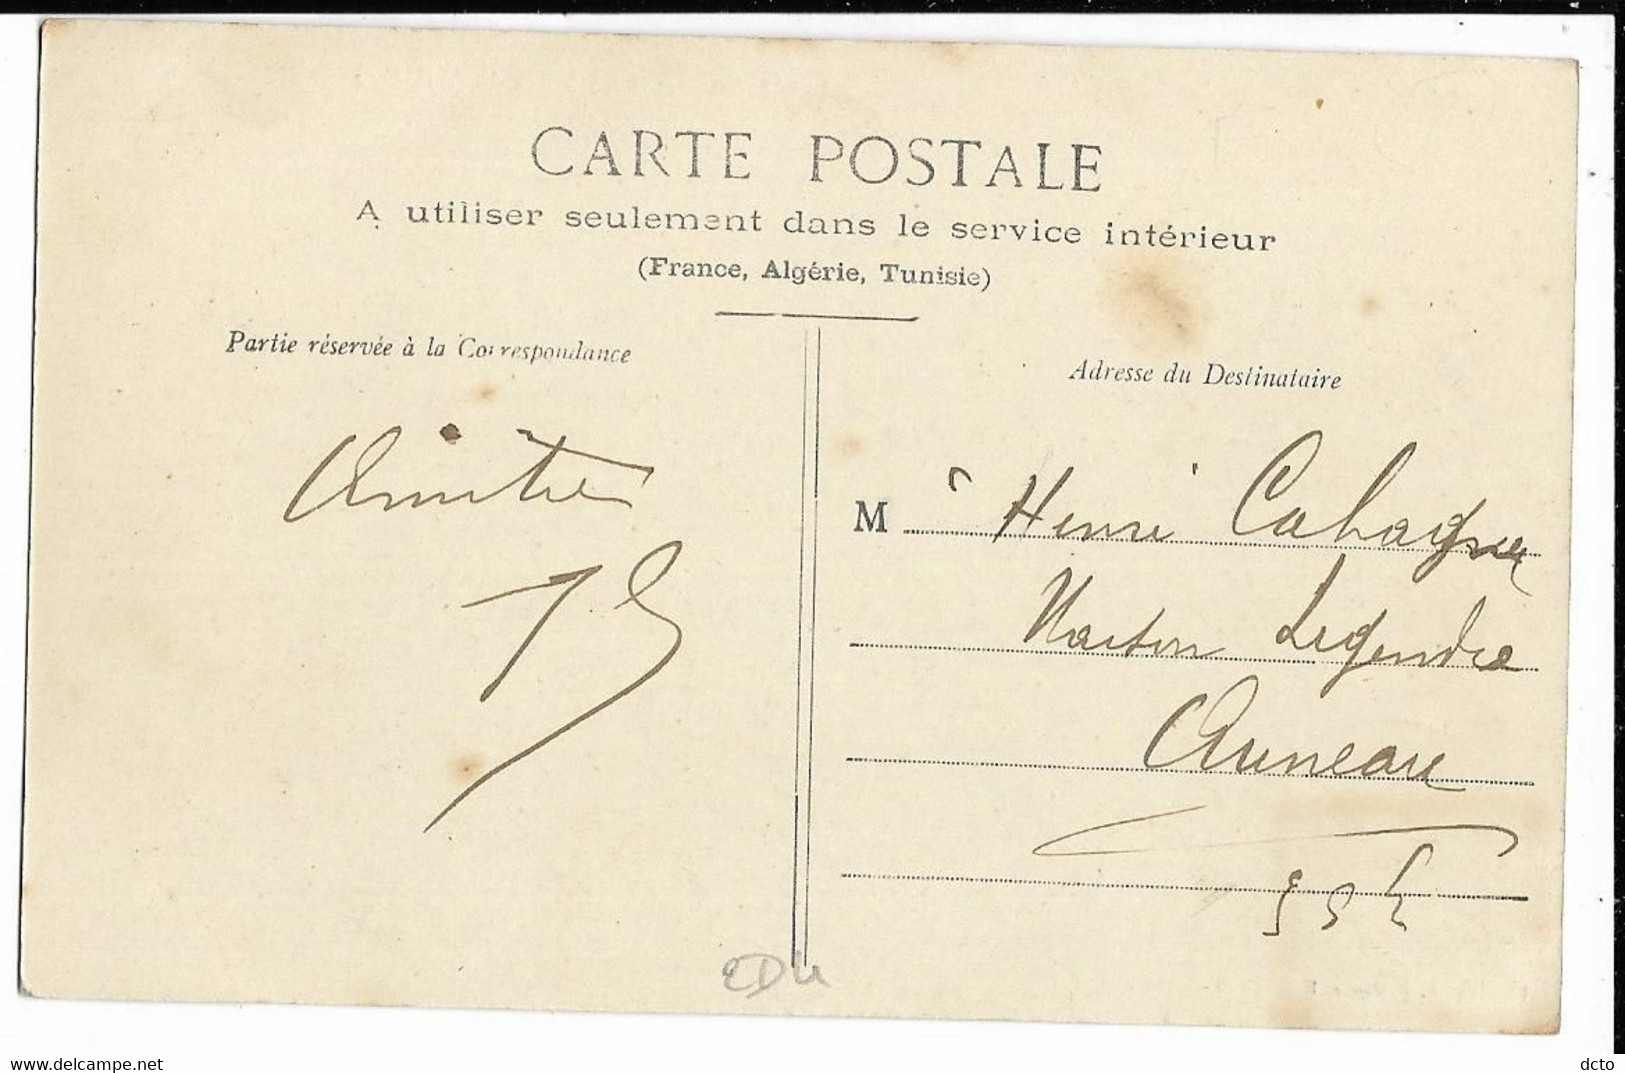 CARTE POSTALE
A utiliser seulement dans le service intérieur
(France, Algérie, Tunisie)
Partie réservée à la Correspondance
Amitié
Adresse du Destinataire
M Henri
Maison Legendre
Auneau
www.delcampe.net
dcto